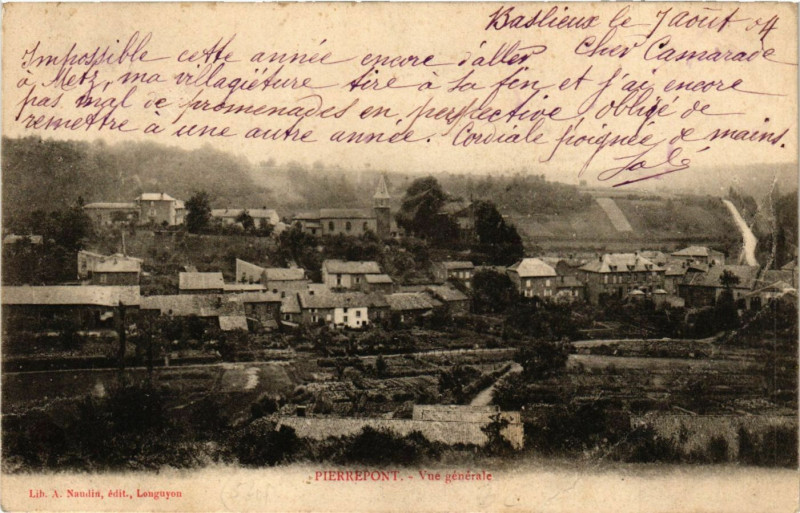 Baslieux le 7 août 04
Cher Camarade
Impossible cette année encore d'aller
à Metz, ma villagiéture tire à sa fin et j'ai encore
pas mal de promenades en perspective obligé de
remettre à une autre année. Cordiale poignée de mains.
PIERREPONT. - Vue générale
Lib. A. Naudin, édit., Longuyon